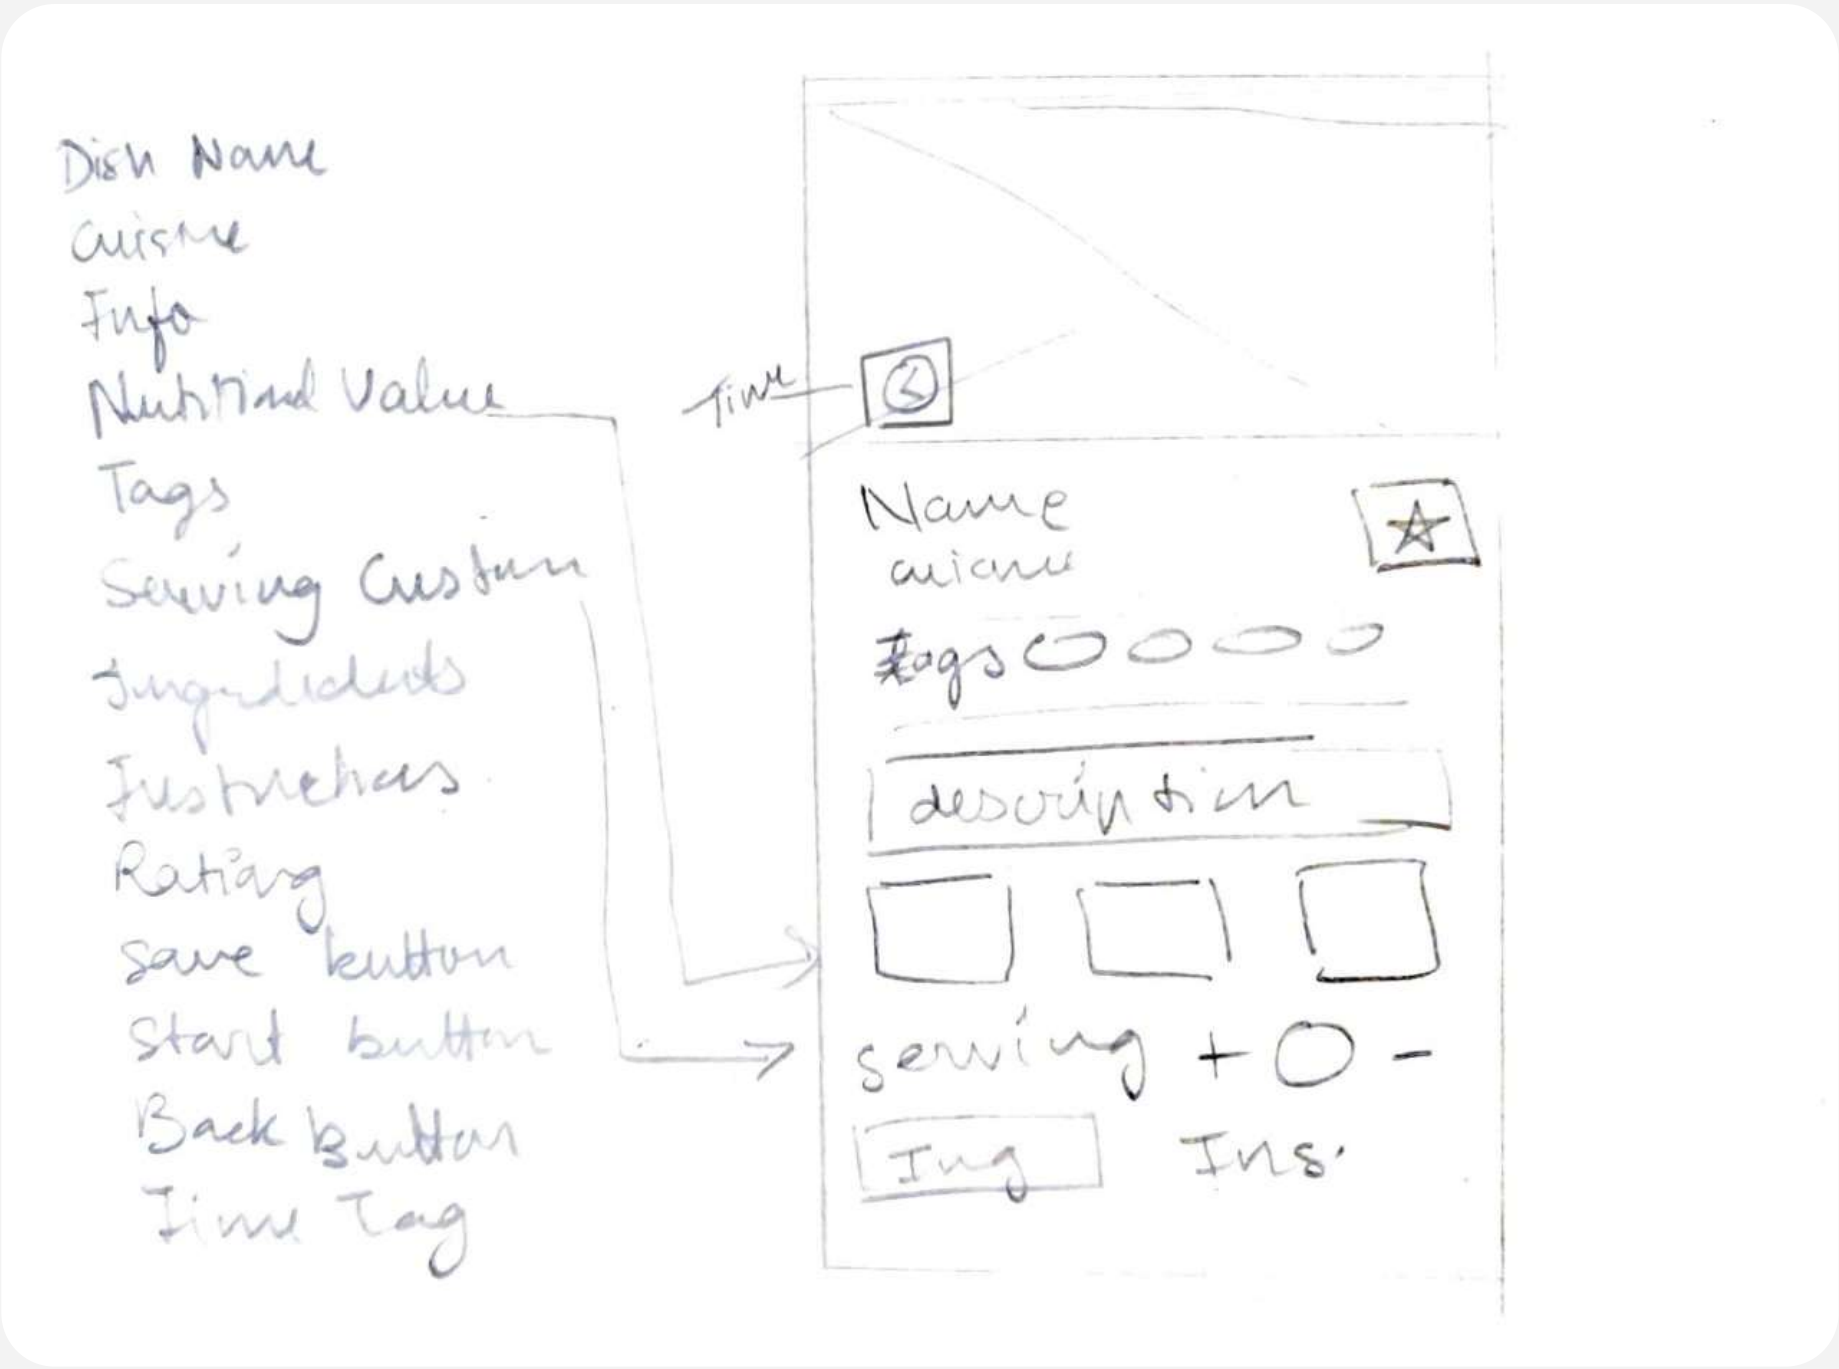 Dish Name
Cuisine
Info
Nutritional Value
Tags
Serving Custom
Ingredients
Instructions
Rating
Save button
Start button
Back Button
Time Tag
Time
Name
cuisine
tags
description
serving + -
Ing
Ins.